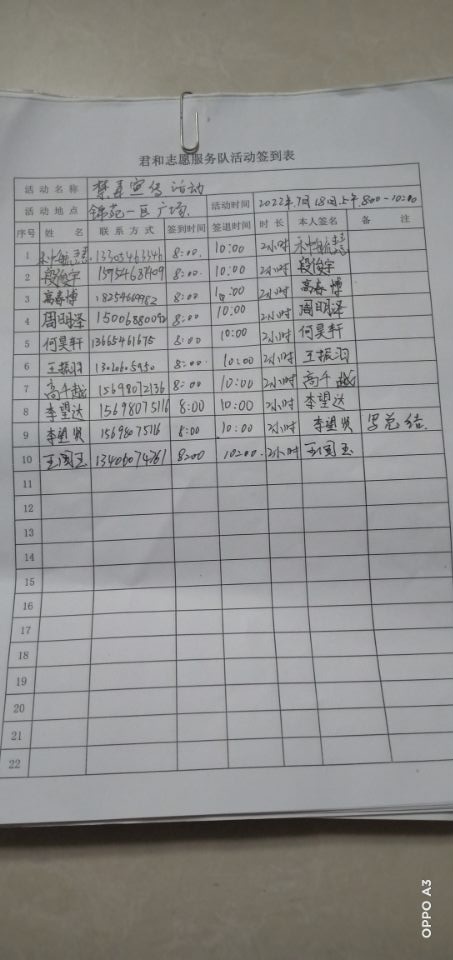 君和志愿服务队活动签到表
活动名称 禁毒宣传活动
活动地点 锦苑一区广场 活动时间 2022年7月18日上午8:00-10:00
序号 姓名 联系方式 签到时间 签退时间 时长 本人签名 备注
1 8:00 10:00 2小时
2 段俊宇 13954637409 8:00 10:00 2小时 段俊宇
3 高春博 8:00 10:00 2小时 高春博
4 周明泽 15006880092 8:00 10:00 2小时 周明泽
5 何昊轩 13665461675 8:00 10:00 2小时 何昊轩
6 王振羽 8:00 10:00 2小时 王振羽
7 高千越 15698012136 8:00 10:00 2小时 高千越
8 李望达 15698075116 8:00 10:00 2小时 李望达
9 李望贤 15698075116 8:00 10:00 2小时 李望贤 写总结
10 王国玉 13406074761 8:00 10:00 2小时 王国玉
11
12
13
14
15
16
17
18
19
20
21
22
OPPO A3